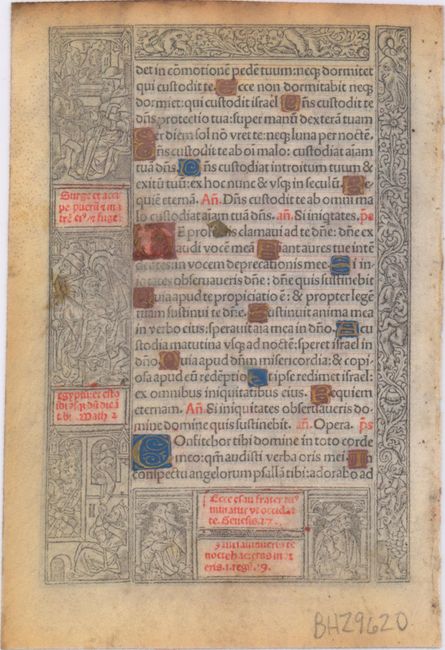 det in cōmotionē pedē tuum: neqʒ dormitet
qui custodit te. Ecce non dormitabit neqʒ
dormiet: qui custodit israel. Dn̄s custodit te
dn̄s protectio tua: super manū dexterā tuam
Per diem sol nō vret te: neqʒ luna per noctē.
Dn̄s custodit te ab oī malo: custodiat aīam
tuā dn̄s. Dn̄s custodiat introitum tuum &
exitū tuū: ex hoc nunc & vsqʒ in seculū. Re
quiē eternā. Añ. Dn̄s custodit te ab omni ma
lo custodiat aīam tuā dn̄s. añ. Si iniqtates. ps
DE profundis clamaui ad te dn̄e: dn̄e ex
audi vocē mea Fiant aures tue intē
dētes in vocem deprecationis mee. Si ini
tates obseruaueris dn̄e: dn̄e quis sustinebit
Quia apud te propiciatio ē: & propter legē
tuam sustinui te dn̄e. Sustinuit anima mea
in verbo eius: sperauit aīa mea in dn̄o. A cu
stodia matutina vsqʒ ad noctē: speret israel in
dn̄o. Quia apud dn̄m misericordia: & copi
osa apud eū redēptio. Et ipse redimet israel:
ex omnibus iniquitatibus eius. Requiem
eternam. Añ. Si iniquitates obseruaueris do
mine domine quis sustinebit. añ. Opera. ps
COnfitebor tibi domine in toto corde
meo: qm̄ audisti verba oris mei. In
conspectu angelorum psallā tibi: adorabo ad
Surge et acci
pe puerū & ma
trē eiꝰ & fuge
egyptū: et esto
ibi vsqʒ dū dicā
tibi. Math. 2
Ecce esau frater tuꝰ
minatur vt occidat
te. Genesis. 27.
nocte hac: cras mo
eris. 1. regū. 19.
BHZ9620